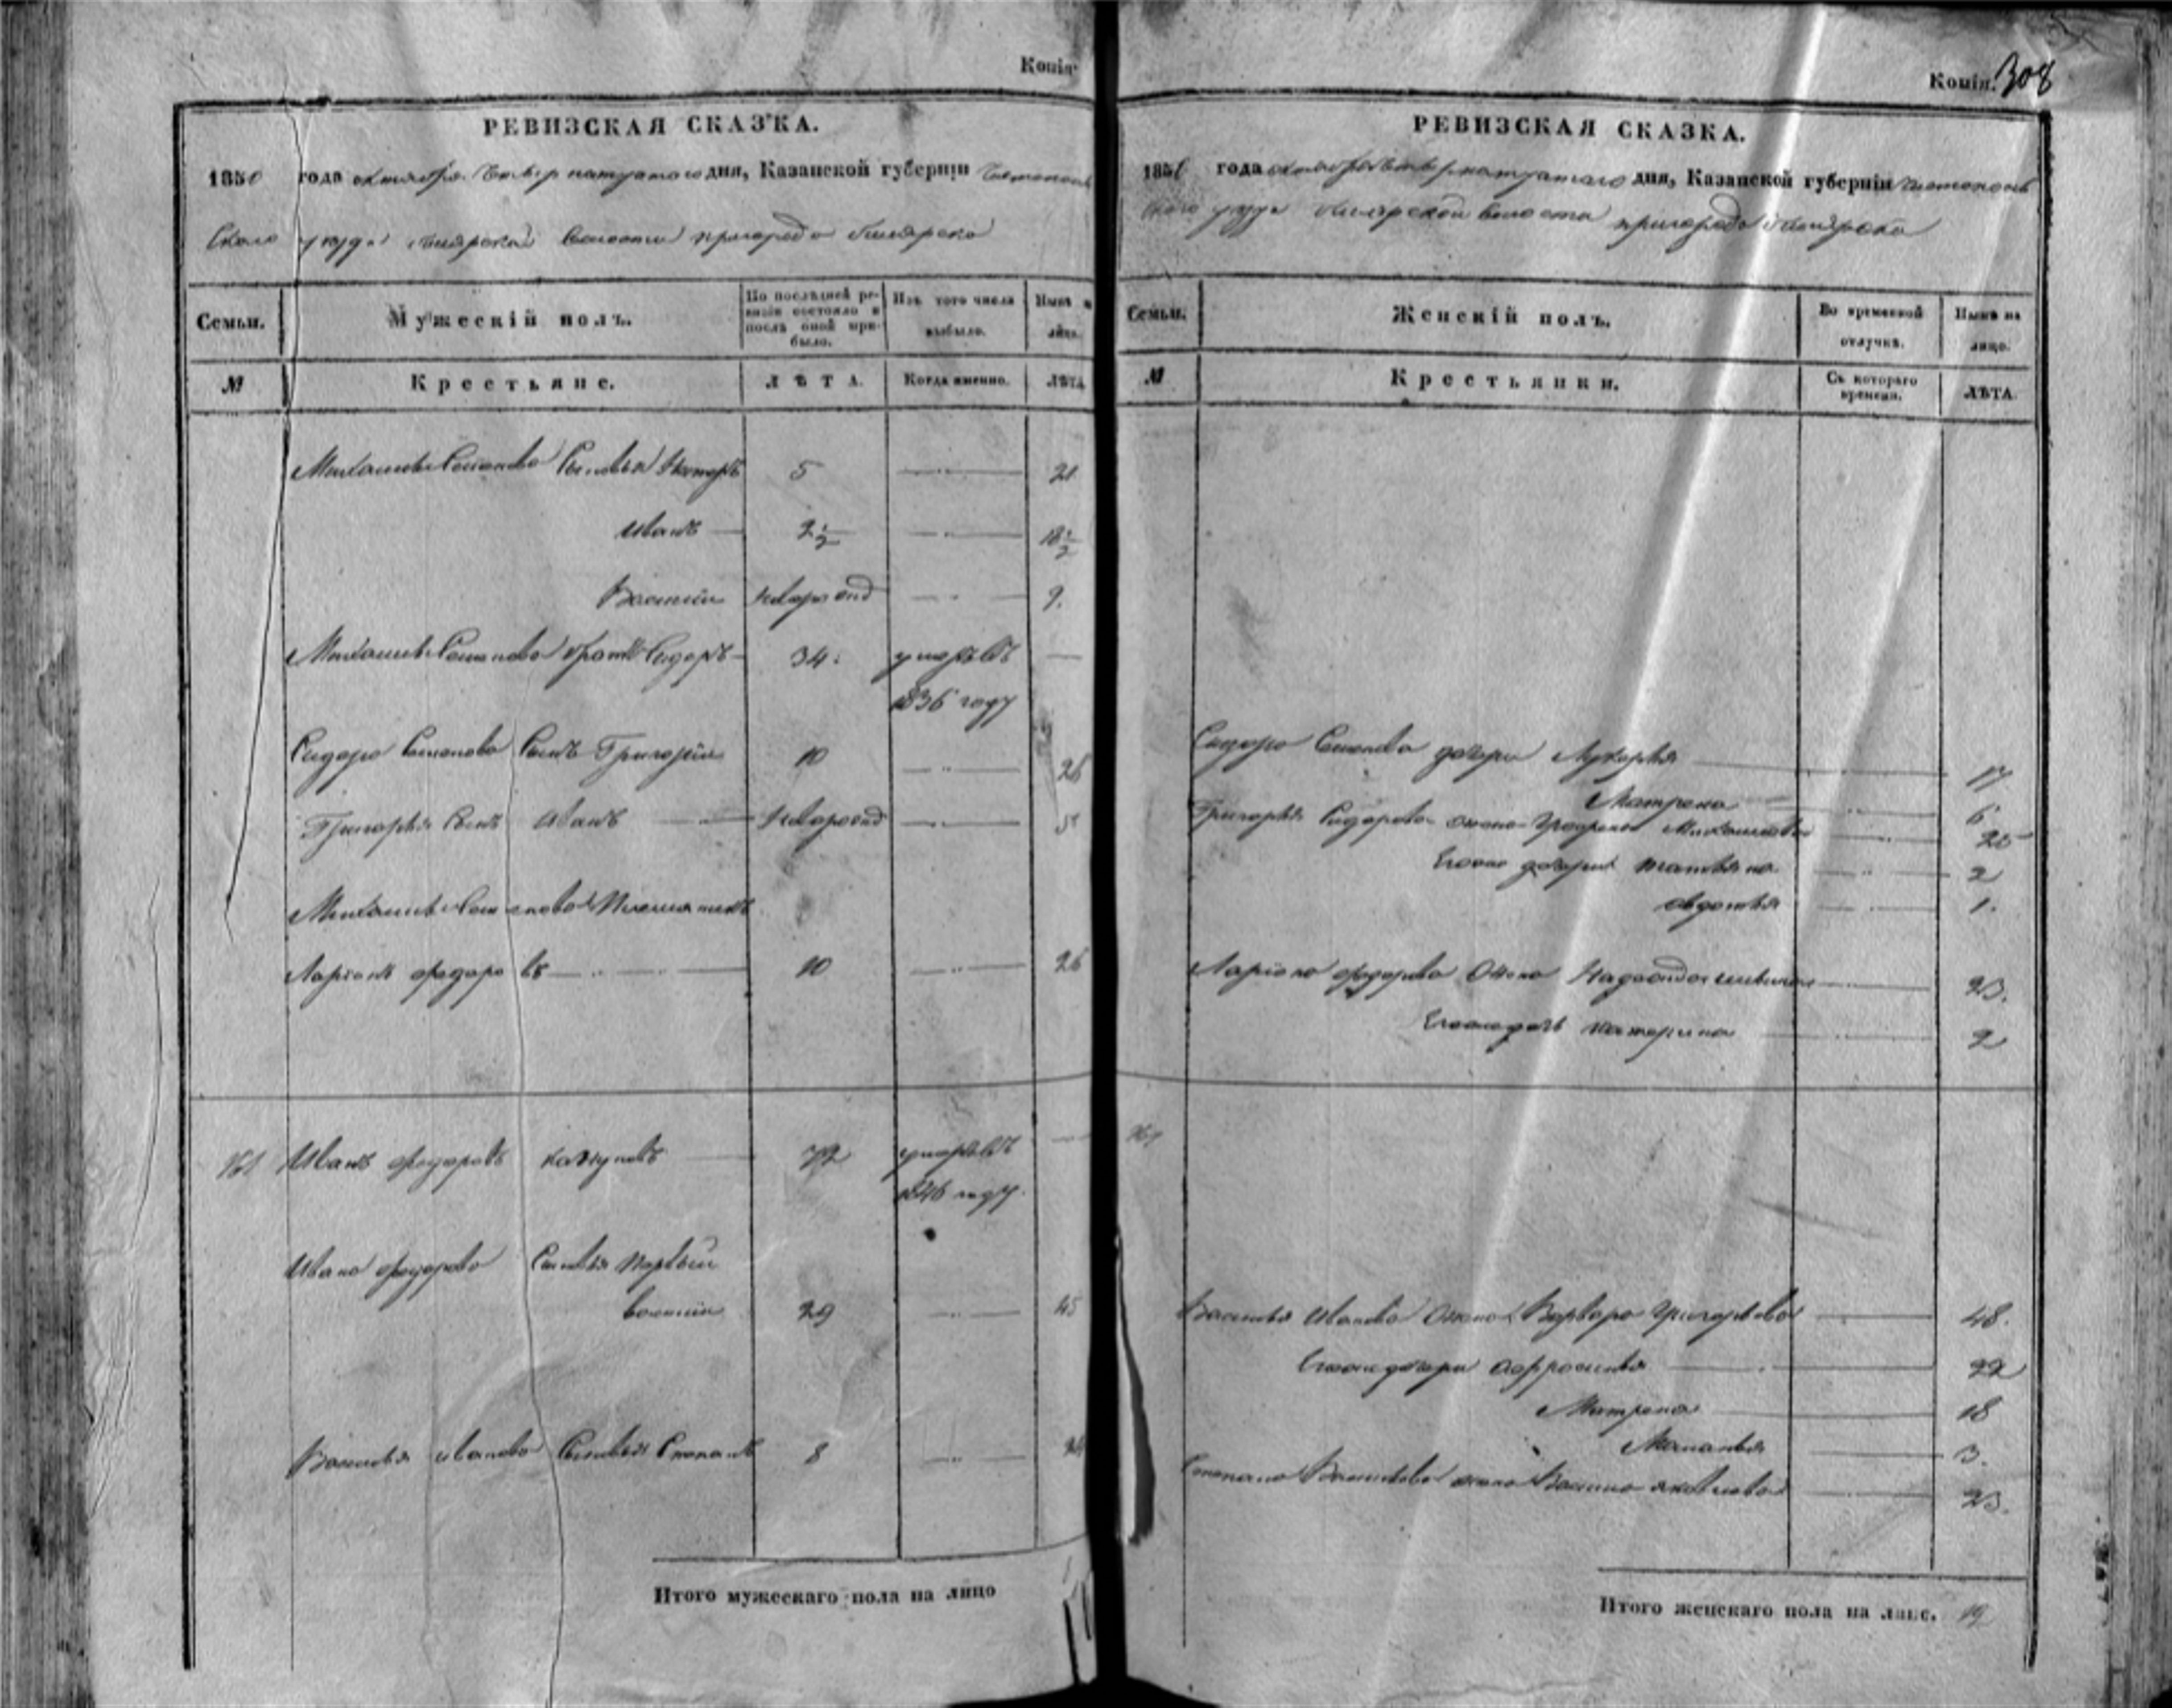 Копія
РЕВИЗСКАЯ СКАЗКА.
1850 года октября дня, Казанской губерніи Чистополь
скаго уезда Билярской волости пригорода Билярска
Семьи.
Мужескій полъ.
По послѣдней ре-
визіи состояло и
послѣ оной при-
было.
Изъ того числа
выбыло.
Нынѣ н
лицо.
№
Крестьяне.
ЛѢТА.
Когда именно.
ЛѢТА
Михаила Семенова Сыновья 5 21
Иванъ 2½ 18½
Василій новорожд 9.
Михаила Семенова братъ Сидоръ 34. умеръ въ
1836 году
Сидора Семенова Сынъ Григорій 10 26
Григорья Сынъ Иванъ новорожд 5
Михаила Семенова Племянникъ
Ларіонъ Федоровъ 10 26
161 Иванъ Федоровъ 72 умеръ въ
1846 году.
Ивана Федорова Сыновья Первый
Василій 29 45
Василья Иванова Сыновья Степанъ 8 24
Итого мужескаго пола на лицо
Копія. 308
РЕВИЗСКАЯ СКАЗКА.
1850 года октября дня, Казанской губерніи Чистополь
скаго уезда Билярской волости пригорода Билярска
Семьи.
Женскій полъ.
Во временной
отлучкѣ.
Нынѣ на
лицо.
№
Крестьянки.
Съ котораго
времени.
ЛѢТА.
Сидора Семенова дочери Лукерья 17
Матрена 6
Григорья Сидорова жена Михайлова 25
Егоже дочери Татьяна 2
Авдотья 1.
Ларіона Федорова Жена 23.
Егоже дочь Катерина 2
161
Василья Иванова Жена Варвара Григорьева 48.
Егоже дочери Афросинья 22
Матрена 18
Маланья 3.
Степана Васильева жена Яковлева 23.
Итого женскаго пола на лицо. 12